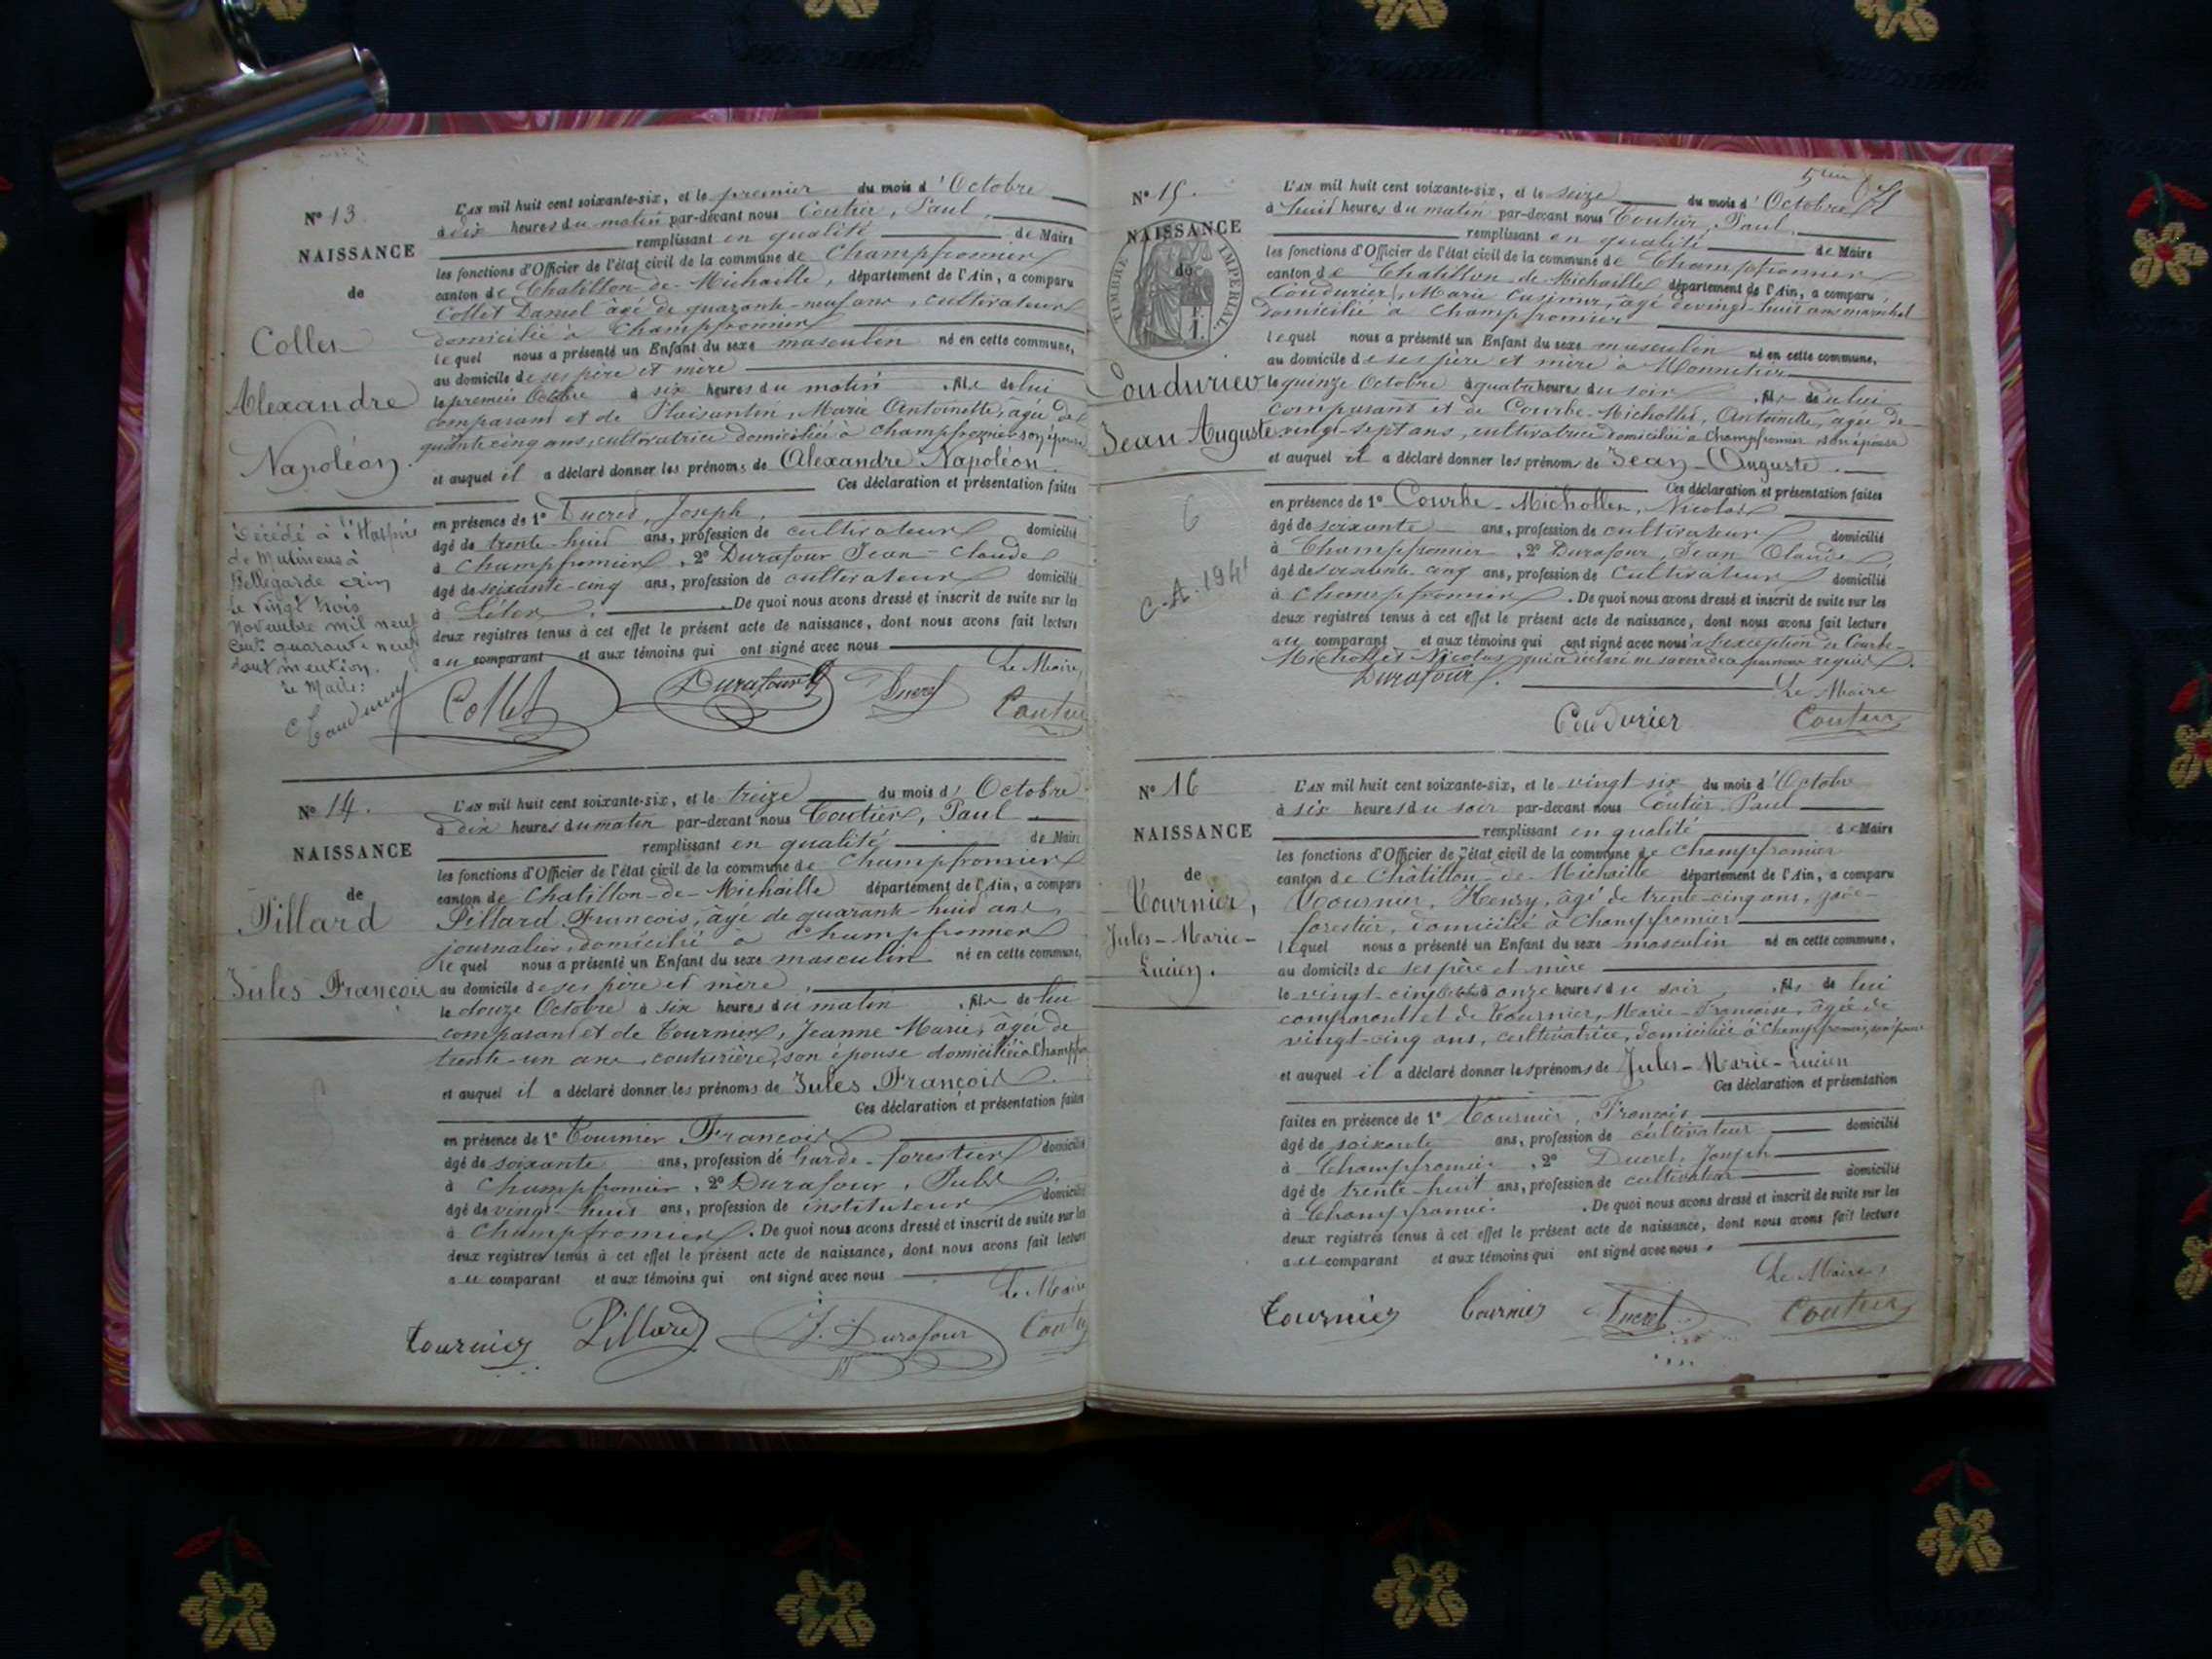 Nº 13.
NAISSANCE
de
Collet
Alexandre
Napoléon.
Décédé à l'Hospice
de Musinens à
Bellegarde Ain
le vingt trois
Novembre mil neuf
cent quarante neuf
dont mention.
Le Maire:
L'AN mil huit cent soixante-six, et le premier du mois d'Octobre
à dix heures du matin par-devant nous Coutier, Paul,
remplissant en qualité de Maire
les fonctions d'Officier de l'état civil de la commune de Champfromier
canton de Chatillon-de-Michaille, département de l'Ain, a comparu
Collet Daniel âgé de quarante-neuf ans, cultivateur
domicilié à Champfromier
lequel nous a présenté un Enfant du sexe masculin né en cette commune,
au domicile de ses père et mère
le premier Octobre à six heures du matin, fils de lui
comparant et de Plaisantin, Marie Antoinette, âgée de
quante cinq ans, cultivatrice domiciliée à Champfromier son épouse
et auquel il a déclaré donner les prénoms de Alexandre Napoléon.
Ces déclaration et présentation faites
en présence de 1º Ducret, Joseph,
âgé de trente-huit ans, profession de cultivateur domicilié
à Champfromier, 2º Durafour Jean-Claude
âgé de soixante-cinq ans, profession de cultivateur domicilié
à . De quoi nous avons dressé et inscrit de suite sur les
deux registres tenus à cet effet le présent acte de naissance, dont nous avons fait lecture
au comparant et aux témoins qui ont signé avec nous
Le Maire,
Collet Durafour Ducret Coutier
Nº 14.
NAISSANCE
de
Pillard
Jules François
L'AN mil huit cent soixante-six, et le treize du mois d'Octobre
à dix heures du matin par-devant nous Coutier, Paul
remplissant en qualité de Maire
les fonctions d'Officier de l'état civil de la commune de Champfromier
canton de Chatillon-de-Michaille département de l'Ain, a comparu
Pillard François, âgé de quarante-huit ans,
journalier, domicilié à Champfromier
lequel nous a présenté un Enfant du sexe masculin né en cette commune,
au domicile de ses père et mère,
le douze Octobre à six heures du matin, fils de lui
comparant et de Tournier, Jeanne Marie, âgée de
trente-un ans, couturière, son épouse domiciliée à Champfr
et auquel il a déclaré donner les prénoms de Jules François.
Ces déclaration et présentation faites
en présence de 1º Tournier François
âgé de soixante ans, profession de Garde-forestier domicilié
à Champfromier, 2º Durafour, Jules
âgé de vingt-huit ans, profession de instituteur domicilié
à Champfromier. De quoi nous avons dressé et inscrit de suite sur les
deux registres tenus à cet effet le présent acte de naissance, dont nous avons fait lecture
au comparant et aux témoins qui ont signé avec nous
Le Maire
Tournier Pillard J. Durafour Coutier
5eme
Nº 15.
NAISSANCE
de
TIMBRE IMPÉRIAL
Coudurier
Jean Auguste
6
C.A. 1941
L'AN mil huit cent soixante-six, et le seize du mois d'Octobre
à huit heures du matin par-devant nous Coutier, Paul,
remplissant en qualité de Maire
les fonctions d'Officier de l'état civil de la commune de Champfromier
canton de Chatillon-de-Michaille département de l'Ain, a comparu,
Coudurier, Marie Casimir, âgé de vingt-huit ans maréchal
domicilié à Champfromier
lequel nous a présenté un Enfant du sexe masculin né en cette commune,
au domicile de ses père et mère à Monnetier
le quinze Octobre à quatre heures du soir, fils de lui
comparant et de Courbe-Michollet, Antoinette, âgée de
vingt-sept ans, cultivatrice domiciliée à Champfromier son épouse
et auquel il a déclaré donner les prénoms de Jean-Auguste.
Ces déclaration et présentation faites
en présence de 1º Courbe-Michollet, Nicolas
âgé de soixante ans, profession de cultivateur domicilié
à Champfromier, 2º Durafour, Jean Claude
âgé de soixante-cinq ans, profession de cultivateur domicilié
à Champfromier. De quoi nous avons dressé et inscrit de suite sur les
deux registres tenus à cet effet le présent acte de naissance, dont nous avons fait lecture
au comparant et aux témoins qui ont signé avec nous à l'exception de Courbe-
Michollet Nicolas qui a déclaré ne savoir de ce requis.
Durafour. Le Maire
Coudurier Coutier
Nº 16
NAISSANCE
de
Tournier,
Jules-Marie-
Lucien.
L'AN mil huit cent soixante-six, et le vingt-six du mois d'Octobre
à six heures du soir par-devant nous Coutier Paul
remplissant en qualité de Maire
les fonctions d'Officier de l'état civil de la commune de Champfromier
canton de Châtillon-de-Michaille département de l'Ain, a comparu
Tournier, Henry, âgé de trente-cinq ans, garde-
forestier, domicilié à Champfromier
lequel nous a présenté un Enfant du sexe masculin né en cette commune,
au domicile de ses père et mère
le vingt-cinq Octobre à onze heures du soir, fils de lui
comparant et de Tournier, Marie-Françoise, âgée de
vingt-cinq ans, cultivatrice, domiciliée à Champfromier, son épouse
et auquel il a déclaré donner les prénoms de Jules-Marie-Lucien
Ces déclaration et présentation
faites en présence de 1º Tournier, François
âgé de soixante ans, profession de cultivateur domicilié
à Champfromier, 2º Ducret, Joseph
âgé de trente-huit ans, profession de cultivateur domicilié
à Champfromier. De quoi nous avons dressé et inscrit de suite sur les
deux registres tenus à cet effet le présent acte de naissance, dont nous avons fait lecture
au comparant et aux témoins qui ont signé avec nous.
Le Maire,
Tournier Tournier Ducret Coutier